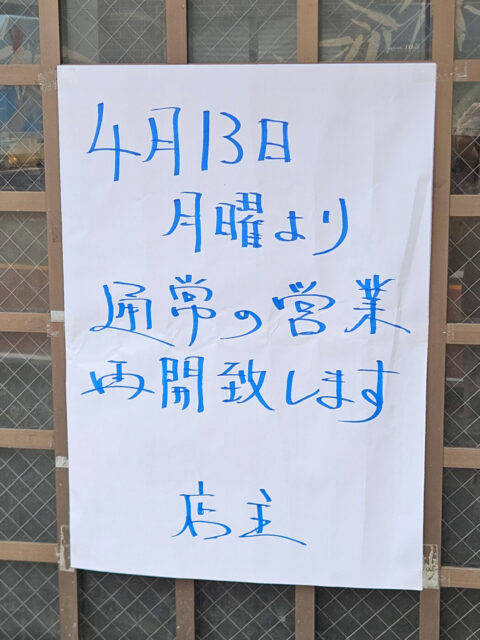 4月13日
月曜より
通常の営業
再開致します
店主